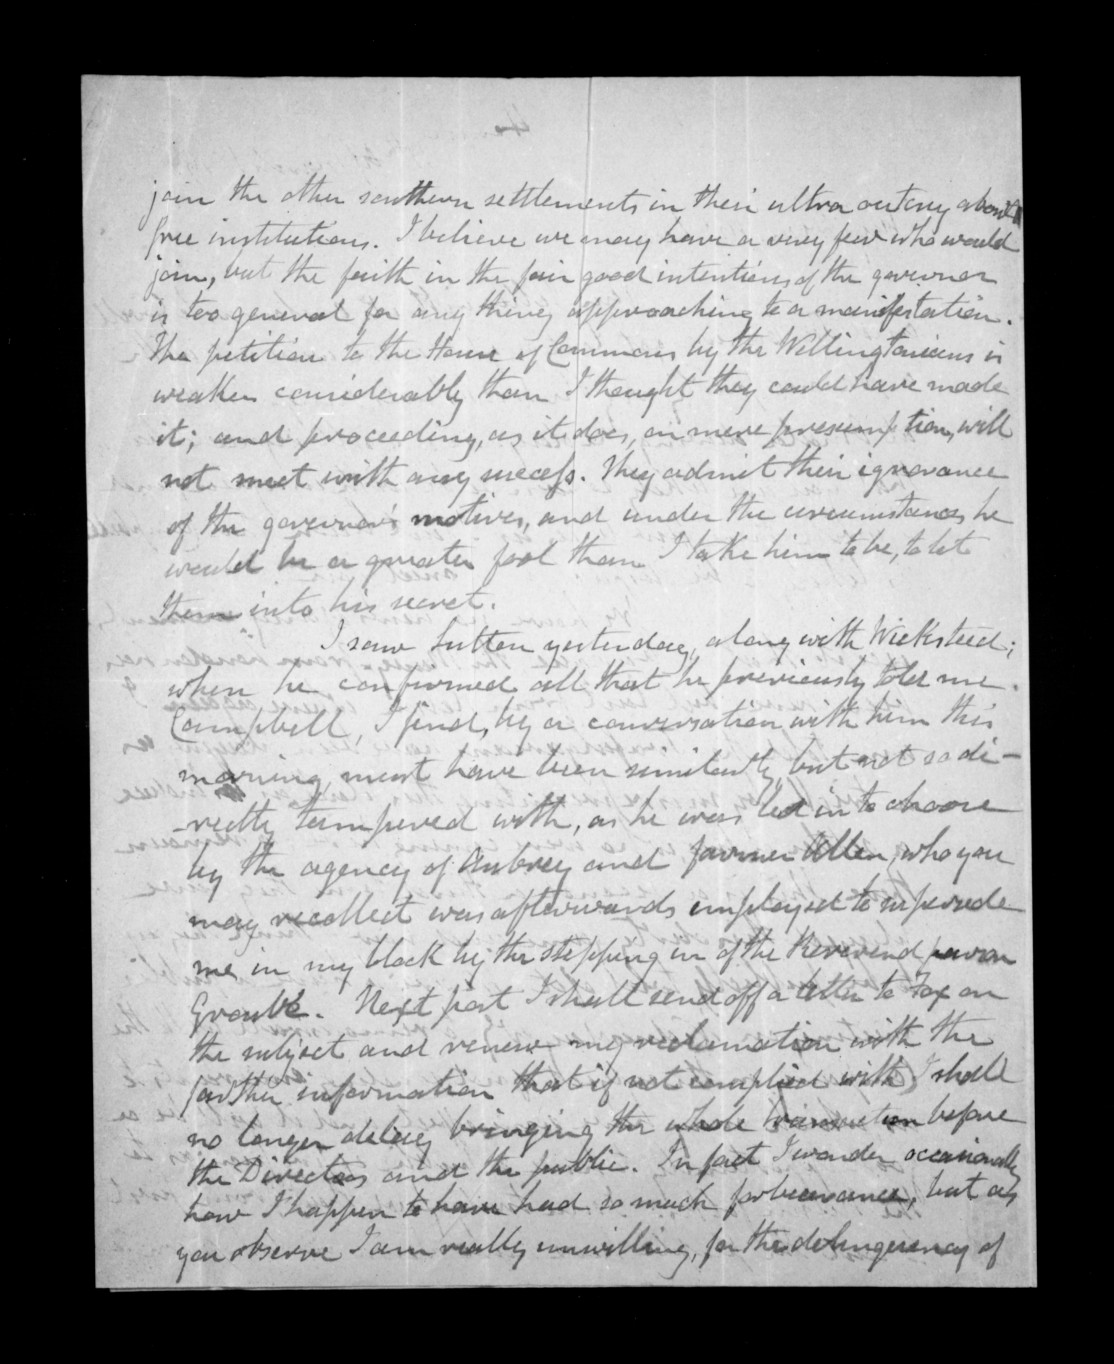 4
join the other southern settlements in their ultra outcry about
free institutions. I believe we may have a very few who would
join, but the faith in the fair good intentions of the governor
is too general for any thing approaching to a manifestation.
The petition to the House of Commons by the Wellingtonians is
weaker considerably than I thought they could have made
it; and proceeding, as it does, on mere presumption, will
not meet with any success. They admit their ignorance
of the governor's motives, and under the circumstances he
would be a greater fool than I take him to be, to let
them into his secret.
I saw Sutton yesterday, along with Wicksteed;
when he confirmed all that he previously told me.
Campbell, I find, by a conversation with him this
morning must have been similarly, but not so di-
-rectly tampered with, as he was led in to choose
by the agency of Aubrey and farmer Allen, who you
may recollect was afterwards employed to supersede
me in my block by the stepping in of the Reverend parson
Next post I shall send off a letter to Fox on
the subject and renew my reclamation with the
farther information that if not complied with I shall
no longer delay bringing the whole transaction before
the Directors and the public. In fact I wonder occasionally
how I happen to have had so much forbearance, but as
you observe I am really unwilling, for the delinquency of